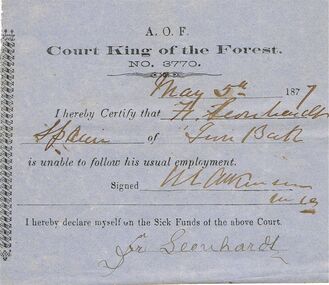 A. O. F.
Court King of the Forest.
NO. 3770.
May 5th 1877
I hereby Certify that F. Leonhardt
of Iron Bark
is unable to follow his usual employment.
Signed
I hereby declare myself on the Sick Funds of the above Court.
Fr Leonhardt